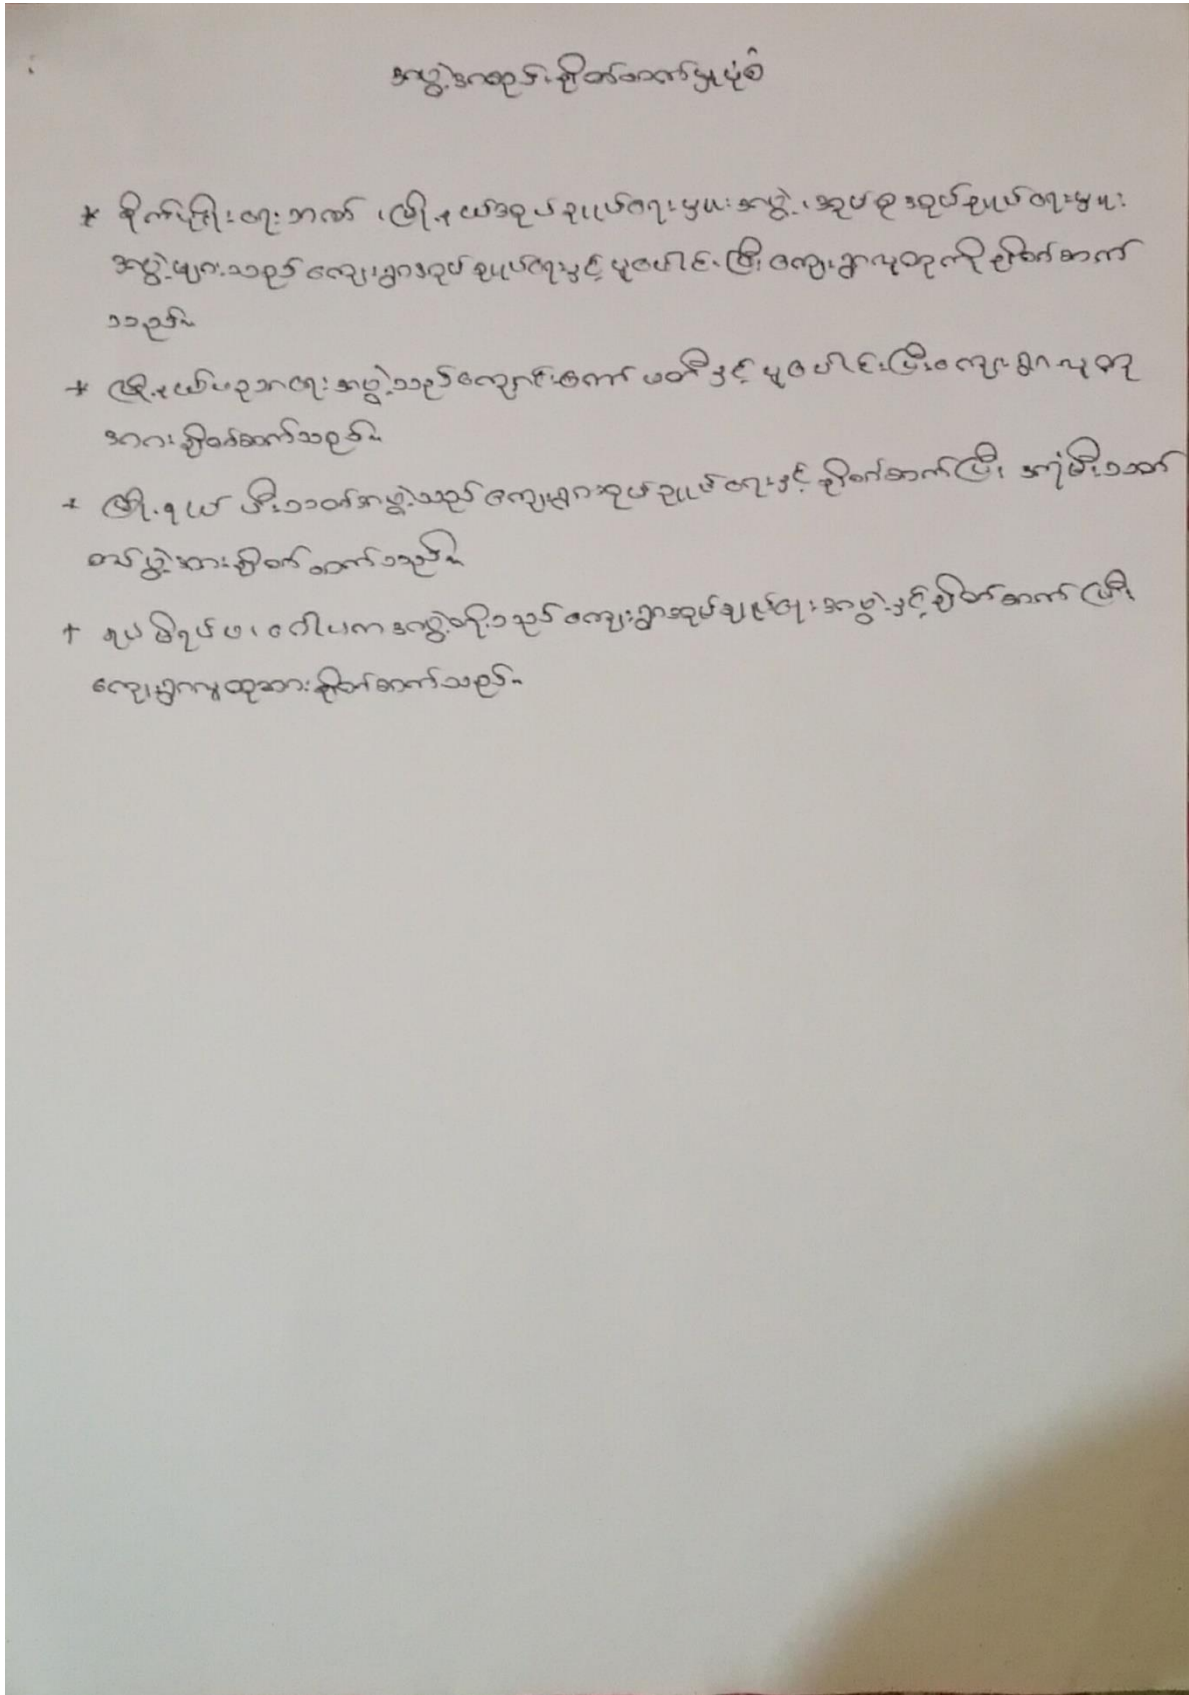 အဖွဲ့အစည်းချိတ်ဆက်မှုပုံစံ
* စိုက်ပျိုးရေးဘဏ် ၊ မြို့နယ်အုပ်ချုပ်ရေးမှူးအဖွဲ့ ၊ အုပ်စုအုပ်ချုပ်ရေးမှူး
အဖွဲ့များသည် ကျေးရွာအုပ်ချုပ်ရေးနှင့် ပူပေါင်းပြီး ကျေးရွာလူထုကို ချိတ်ဆက်
သည်။
* မြို့နယ်ပညာရေးအဖွဲ့သည် ကျောင်းကော်မတီနှင့် ပူပေါင်းပြီး ကျေးရွာလူထု
အား ချိတ်ဆက်သည်။
* မြို့နယ် မီးသတ်အဖွဲ့သည် ကျေးရွာအုပ်ချုပ်ရေးနှင့် ချိတ်ဆက်ပြီး အရံမီးသတ်
တပ်ဖွဲ့အား ချိတ်ဆက်သည်။
* ရပ်မိရပ်ဖ ၊ ဂေါပက အဖွဲ့တို့သည် ကျေးရွာအုပ်ချုပ်ရေးအဖွဲ့နှင့် ချိတ်ဆက်ပြီး
ကျေးရွာလူထုအား ချိတ်ဆက်သည်။